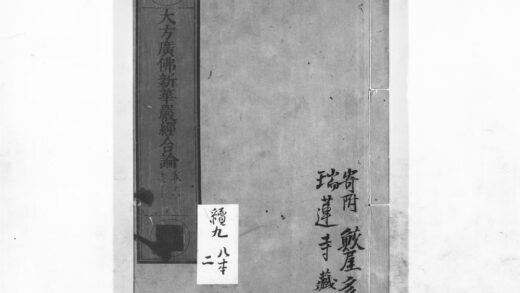 大方廣佛新華嚴經合論
寄附 鮫屋
瑞蓮寺藏
續九
八本
二